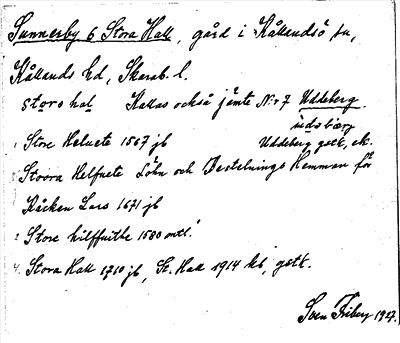 Sunnersby 6 Stora Hall, gård i Kållandsö sn,
Kållands hd, Skarab. l.
storo hal Kallas också jämte N:r 7 Uddeberg.
uda bærg
1 Store Helvete 1567 jb Uddeberg gstk, ek.
3 Stoora Helfuete Löhn och Bestelnings Hemman för
Käcken Lars 1671 jb
2 Store hilffuithe 1580 mtl.
4. Stora Hall 1710 jb, St. Hall 1914 kb, gstk.
Sven Friberg 1927.